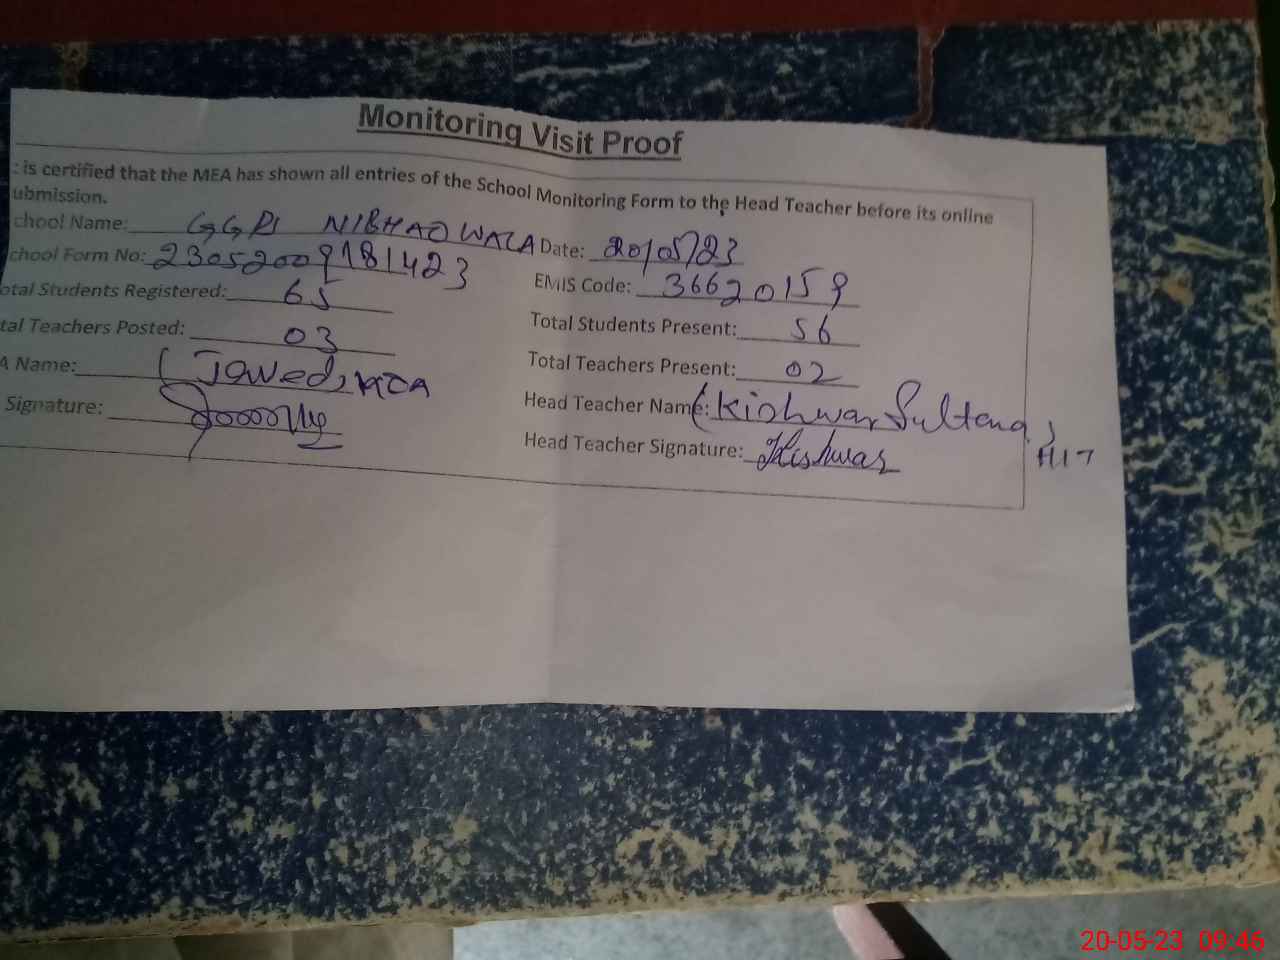 Monitoring Visit Proof
: is certified that the MEA has shown all entries of the School Monitoring Form to the Head Teacher before its online
ubmission.
chool Name: GGPS NIBHAO WALA Date: 20/05/23
chool Form No: 23052009181423 EMIS Code: 36620159
otal Students Registered: 65 Total Students Present: 56
tal Teachers Posted: 03 Total Teachers Present: 02
A Name: (Jawed, MEA Head Teacher Name: (Kishwar Sultana)
Signature: Head Teacher Signature: Kishwar
20-05-23 09:46